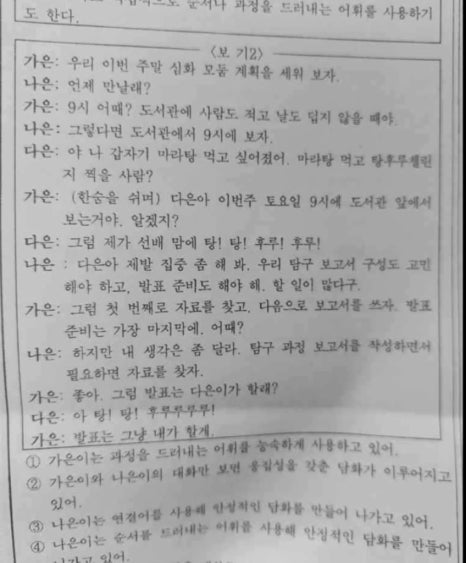 순서나 과정을 드러내는 어휘를 사용하기
도 한다.
<보 기2>
가은: 우리 이번 주말 심화 모둠 계획을 세워 보자.
나은: 언제 만날래?
가은: 9시 어때? 도서관에 사람도 적고 날도 덥지 않을 때야.
나은: 그렇다면 도서관에서 9시에 보자.
다은: 야 나 갑자기 마라탕 먹고 싶어졌어. 마라탕 먹고 탕후루챌린
지 찍을 사람?
가은: (한숨을 쉬며) 다은아 이번주 토요일 9시에 도서관 앞에서
보는거야. 알겠지?
다은: 그럼 제가 선배 맘에 탕! 탕! 후루! 후루!
나은 : 다은아 제발 집중 좀 해 봐. 우리 탐구 보고서 구성도 고민
해야 하고, 발표 준비도 해야 해. 할 일이 많다구.
가은: 그럼 첫 번째로 자료를 찾고, 다음으로 보고서를 쓰자. 발표
준비는 가장 마지막에. 어때?
나은: 하지만 내 생각은 좀 달라. 탐구 과정 보고서를 작성하면서
필요하면 자료를 찾자.
가은: 좋아. 그럼 발표는 다은이가 할래?
다은: 아 탕! 탕! 후루루루루!
가은: 발표는 그냥 내가 할게.
① 가은이는 과정을 드러내는 어휘를 능숙하게 사용하고 있어.
② 가은이와 나은이의 대화만 보면 응집성을 갖춘 담화가 이루어지고
있어.
③ 나은이는 연결어를 사용해 안정적인 담화를 만들어 나가고 있어.
④ 나은이는 순서를 드러내는 어휘를 사용해 안정적인 담화를 만들어
나가고 있어.